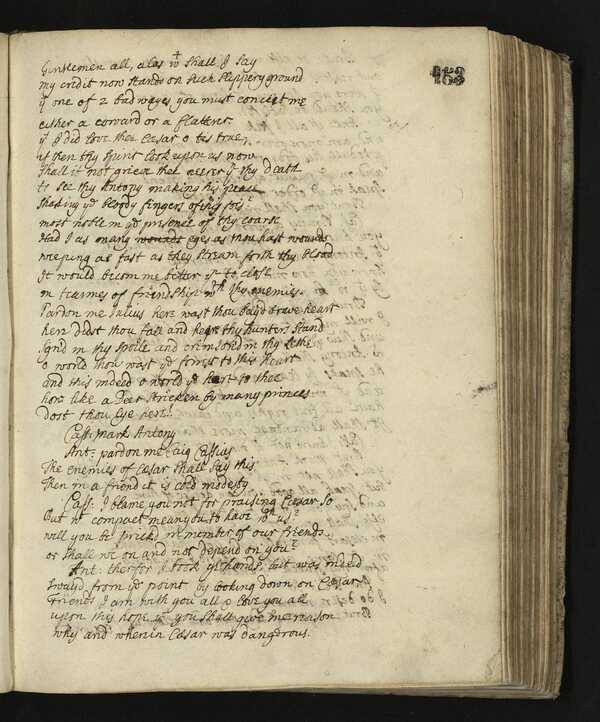 163
Gentlemen all, alas wt shall I say
my credit now stands on such slippery ground
yt one of 2 bad wayes you must conceit me
either a coward or a flaterer
yt I did love thee Cæsar o tis true,
if then thy spirit look upon us now
shall it not grieve thee neerer yn thy death
to see thy Antony making his peace
shaking ye bloody fingers of his fois
most noble in ye presence of thy coarse
Had I as many wounds eyes as thou hast wounds
weeping as fast as they stream forth thy blood
It would becom me better yn to close
in tearmes of friendship wth thy enemies.
Pardon me Julius here wast thou bayd brave heart
here didst thou fall and here thy hunters stand
Sign'd in thy spoile and crimsoted in thy lethe
o world thou wast ye forrest to this heart
and this indeed o world ye hart to thee
how like a Dear stricken by many princes
dost thou lye here!
Cass: Mark Antony
Ant: pardon me Caig Cassius
The enemies of Cæsar shall say this
Then in a friend it is cold modesty
Cass. I blame you not for praising Cæsar so
but wt compact mean you to have wth us?
will you be prickd in member of our friends
or shall we on and not depend on you?
Ant: therfor I took yr hands, but was indeed
Swayd from ye point by looking down on Cæsar
Friends I am with you all & love you all
upon this hope yt you shall give me reason
why and wherein Cæsar was dangrous.